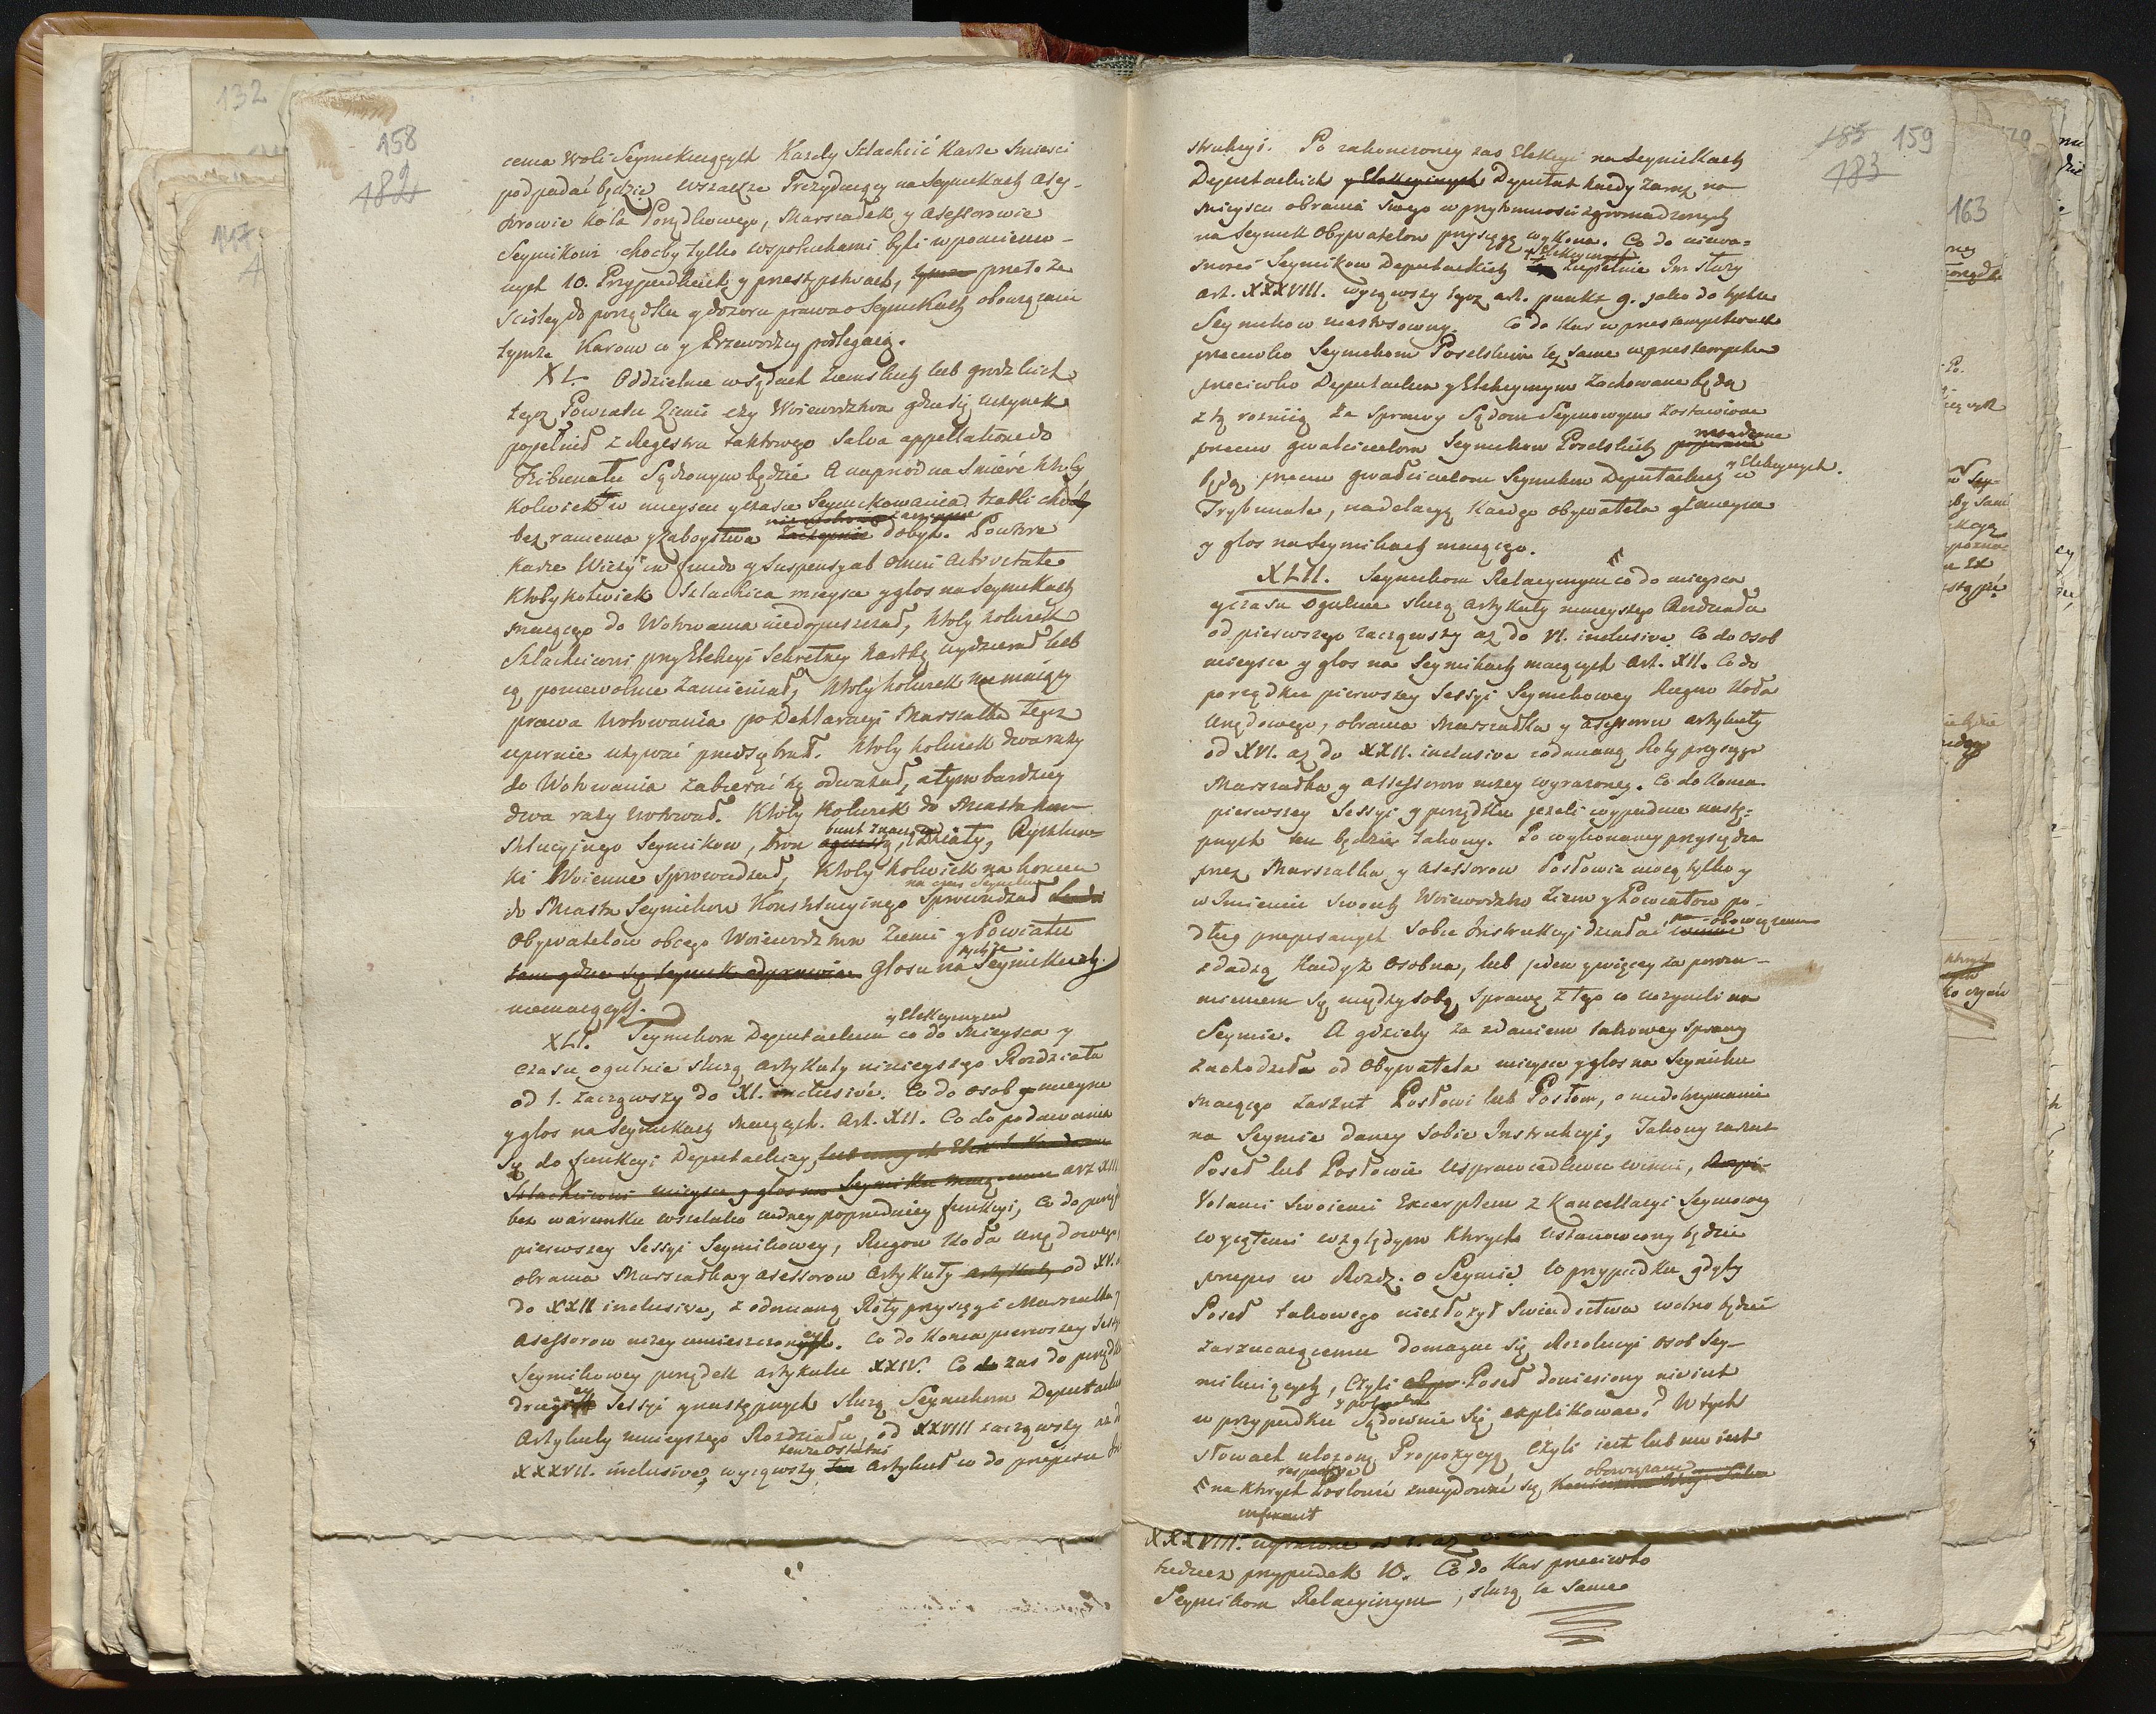 132
158
182
117
A
cenia woli Seymikuiących Każdy Szlachcic karze śmierci
podpadać będzie wszakże Prezyduiący na Seymikach Ass-
sorowie Koła Porządkowego, Marszałek y Assessorowie
Seymikowi choćby tylko wspołuchami byli w pomienio-
nych 10. Przypadkach y przestępstwach, tymże przeto że
ściśley do porządku y dozoru prawa o Seymikach obowiązani
tymże Karom co y Przewodzcy podlegaią.
XL. Oddzielnie w sądach Ziemskich lub grodzkich
tegoż Powiatu Ziemi czy Woiewodztwa gdzie się uczynek
popełnił z Regestru taktowego salva appellatione do
Tribunału Sądzonym będzie A naprzód na śmierć ktoby
kolwiek w mieyscu y czasie Seymikowania szabli choćby
nie zaczepnie
bez ranienia y zaboystwa zaczepnie dobył. Powtóre
karze Wieży in fundo y Suspensy ab omni activitate
ktoby kolwiek Szlachcica mieysce y głos na Seymikach
maiącego do Wotowania niedopuszczał, ktoby kolwiek
Szlachcicowi przy Elekcyi sekretney kartkę wydzierał lub
ią poniewolnie zamieniał, ktoby kolwiek nie maiący
prawa wotowania po Deklaracyi Marszałka tegoż
upornie używać przedsiębrał. Ktoby kolwiek dwa razy
do Wotowania zabierać się odważał, a tym bardziey
dwa razy wotował. Ktoby kolwiek do Miasta kon-
bunt znaczący
stytucyinego Seymikow, bron ognistą, Działy, Rysztun-
ki Woienne sprowadzał, Ktoby kolwiek na koniec
na czas Seymiku
do Miasta Seymikow Konstytucyinego sprowadzał Ludzi
Obywatelow obcego Woiewodztwa Ziemi y Powiatu
tychże
tam gdzie się Seymik odprawia głosu na Seymikach
niemaiących.
y Elekcyinym
XLI. Seymikom Deputackim co do Mieysca y
czasu ogulnie służą artykuły ninieyszego Rozdziału
od 1. zacząwszy do XI. inclusive. Co do osob y mieysce
y głos na Seymikach maiących. Art. XII. Co do podawania
się do funkcyi Deputackiey, lub
Szlachcicowi mieysce y głos na Seymiku maiącemu art XIII
bez warunku wszelako żadney poprzedniey funkcyi, Co do porząd
pierwszey Sessyi Seymikowey, Rugow Koła Urzędowego,
obrania Marszałka y Asessorow Artykuły artykuły od XVI.
do XXII inclusive, z odmianą Roty przysięgi Marszałka y
Asessorow niżey umieszczoney. Co do Konca pierwszey Sessyi
Seymikowey porządek artykułu XXIV. Co do zas do porządku
drugiey Sessyi y następnych służą Seymikom Deputackim
Artykuły ninieyszego Rozdziału, od XXVIII zacząwszy aż do
tenże ostatni
XXXVII. inclusive, wyiąwszy ten Artykuł co do przepisu In
185 159
183
strukcyi. Po zakonczoney zas Elekcyi na Seymikach
Deputackich y Elekcyinych Deputat każdy zaraz na
mieyscu obrania swego w przytomności zgromadzonych
na Seymik Obywatelow przysięgę wykona. Co do niewa-
y Elekcyinych
żności Seymikow Deputackich zupełnie im służy
art. XXXVIII. wyiąwszy tegoż art. punkt 9. iako do tychże
Seymikow niestosowny. Co do Kar w przestempstwach
przeciwko Seymikom Poselskim też same w przestempstwa
przeciwko Deputackim y Elekcyinym zachowane będą
z tą roznicą że sprawy Sądom Seymowym zostawione
rosądzone
przeciw gwałcicielom Seymikow Poselskich popierane
y Elekcyinych.
będą przeciw gwałcicielom Seymikow Deputackich w
Trybunale, na delacyą każdego obywatela y mieysce
y głos na Seymikach maiącego.
XLII. Seymikom Relacyinym co do mieysca
y czasu ogulnie służą artykuły ninieyszego Rozdziału
od pierwszego zacząwszy aż do VI. inclusive Co do osob
mieysce y głos na Seymikach maiących Art. XII. Co do
porządku pierwszey Sessyi Seymikowey Rugow Koła
Urzędowego, obrania Marszałka y Asessorow artykuły
od XVI. aż do XXII. inclusive z odmianą Roty przysięgi
Marszałka y Assessorow niżey wyrażoney. Co do Konca
pierwszey Sessyi y porządku ieżeli wypadnie nastę-
pnych ten będzie takowy. Po wykonaney przysiędze
przez Marszałka y Asessorow Posłowie mocą tylko y
w Imieniu swoich Woiewodztw Ziem y Powiatow po-
obowiązani
dług przepisanych sobie Instrukcyi działać winni
zdadzą każdy z osobna, lub ieden y więcey za porozu-
mieniem się między sobą, sprawę z tego co uczynili na
Seymie. A gdzieby za zdaniem takowey sprawy
zachodziła od Obywatela mieysce y głos na Seymiku
maiącego zarzut Posłowi lub Posłom, o niedotrzymanie
na Seymie daney sobie Instrukcyi, Takowy zarzut
Poseł lub Posłowie usprawiedliwić winni,
Votami swoiemi Excerptem z Kancellaryi Seymowey
wyiętemi względem ktorych ustanowiony będzie
przepis w Rozdz. o Seymie. W przypadku gdyby
Poseł takowego niezłożył świadectwa wolno będzie
zarzucaiącemu domagać się Rezolucyi osob Sey-
mikuiących, Czyli Poseł doniesiony nie iest
w przypadku sądownie się explikować? W tych
słowach ułożoną Propozycyą Czyli iest lub nie iest
obowiązani
na ktorych Posłowie znaydować się
XXXVIII. wyrażone od 1. aż
tudzież przypadek 10. Co do Kar przeciwko
Seymikom Relacyinym, służą te same
163